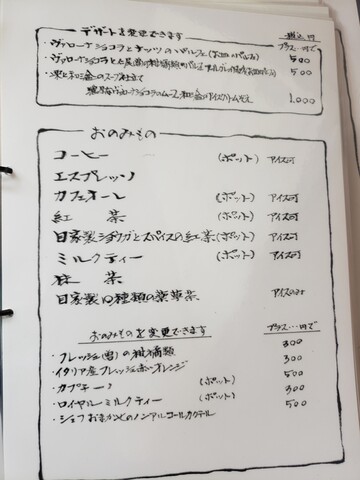 デザートを変更できます 税込 円
プラス…円で
・ヴァローナショコラとナッツのパルフェ 500
・ヴァローナショコラと 柑橘 500
スープ仕立て
ヴァローナショコラのムース アイスクリーム 1,000
おのみもの
コーヒー (ポット) アイス可
エスプレッソ
カフェオーレ (ポット) アイス可
紅茶 (ポット) アイス可
自家製ショウガとスパイスの紅茶 (ポット) アイス可
ミルクティー (ポット) アイス可
抹茶
自家製10種類の薬草茶 アイスのみ
おのみものを変更できます プラス…円で
・フレッシュ(雪)の柑橘類 300
・イタリア産フレッシュ赤いオレンジ 300
・カプチーノ (ポット) 500
・ロイヤルミルクティー (ポット) 300
・シェフおまかせのノンアルコールカクテル 500